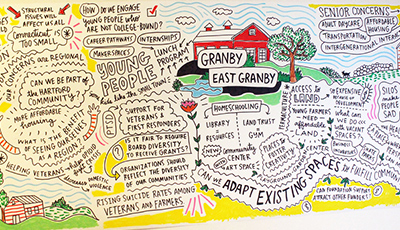 STRUCTURAL
ISSUES WILL
AFFECT US ALL
CONNECTICUT
TOO SMALL
CAN WE BE PART
OF THE
HARTFORD
COMMUNITY?
MORE AFFORDABLE
HOUSING
WHAT IS THE BENEFIT
OF SEEING OURSELVES
AS A REGION?
HELPING VETERANS
DOMESTIC
VIOLENCE
HOW DO WE ENGAGE
YOUNG PEOPLE WHO
ARE NOT COLLEGE-BOUND?
CAREER PATHWAYS
INTERNSHIPS
MAKER SPACES
LUNCH
PROGRAM
YOUNG
PEOPLE
LIKE THE SMALL TOWN
PTSD
SUPPORT FOR
VETERANS &
FIRST RESPONDERS
IS IT FAIR TO REQUIRE
BOARD DIVERSITY
TO RECEIVE GRANTS?
ORGANIZATIONS SHOULD
REFLECT THE DIVERSITY
OF OUR COMMUNITIES
RISING SUICIDE RATES AMONG
VETERANS AND FARMERS
GRANBY
EAST GRANBY
HOMESCHOOLING
LIBRARY
RESOURCES
LAND TRUST
GYM
NEW
COMMUNITY
CENTER
ART SPACE
PLACES TO
FOSTER
CREATIVITY
PLAYGROUND
CAN WE ADAPT EXISTING SPACES TO FULFILL
SENIOR CONCERNS
ADULT DAYCARE
AFFORDABLE
HOUSING
TRANSPORTATION
INTERGENERATIONAL
ACCESS TO
LAND
YOUNG
FARMERS
NEED
AFFORDABLE
LAND
TOWN
CENTER
SO EXPENSIVE
DEVELOPMENT
WHAT
CAN WE DO
WITH VACANT
SILOS
MAKE
PEOPLE
SAD
COMMON
CAN FOUNDATION SUPPORT
ATTRACT OTHER FUNDERS?